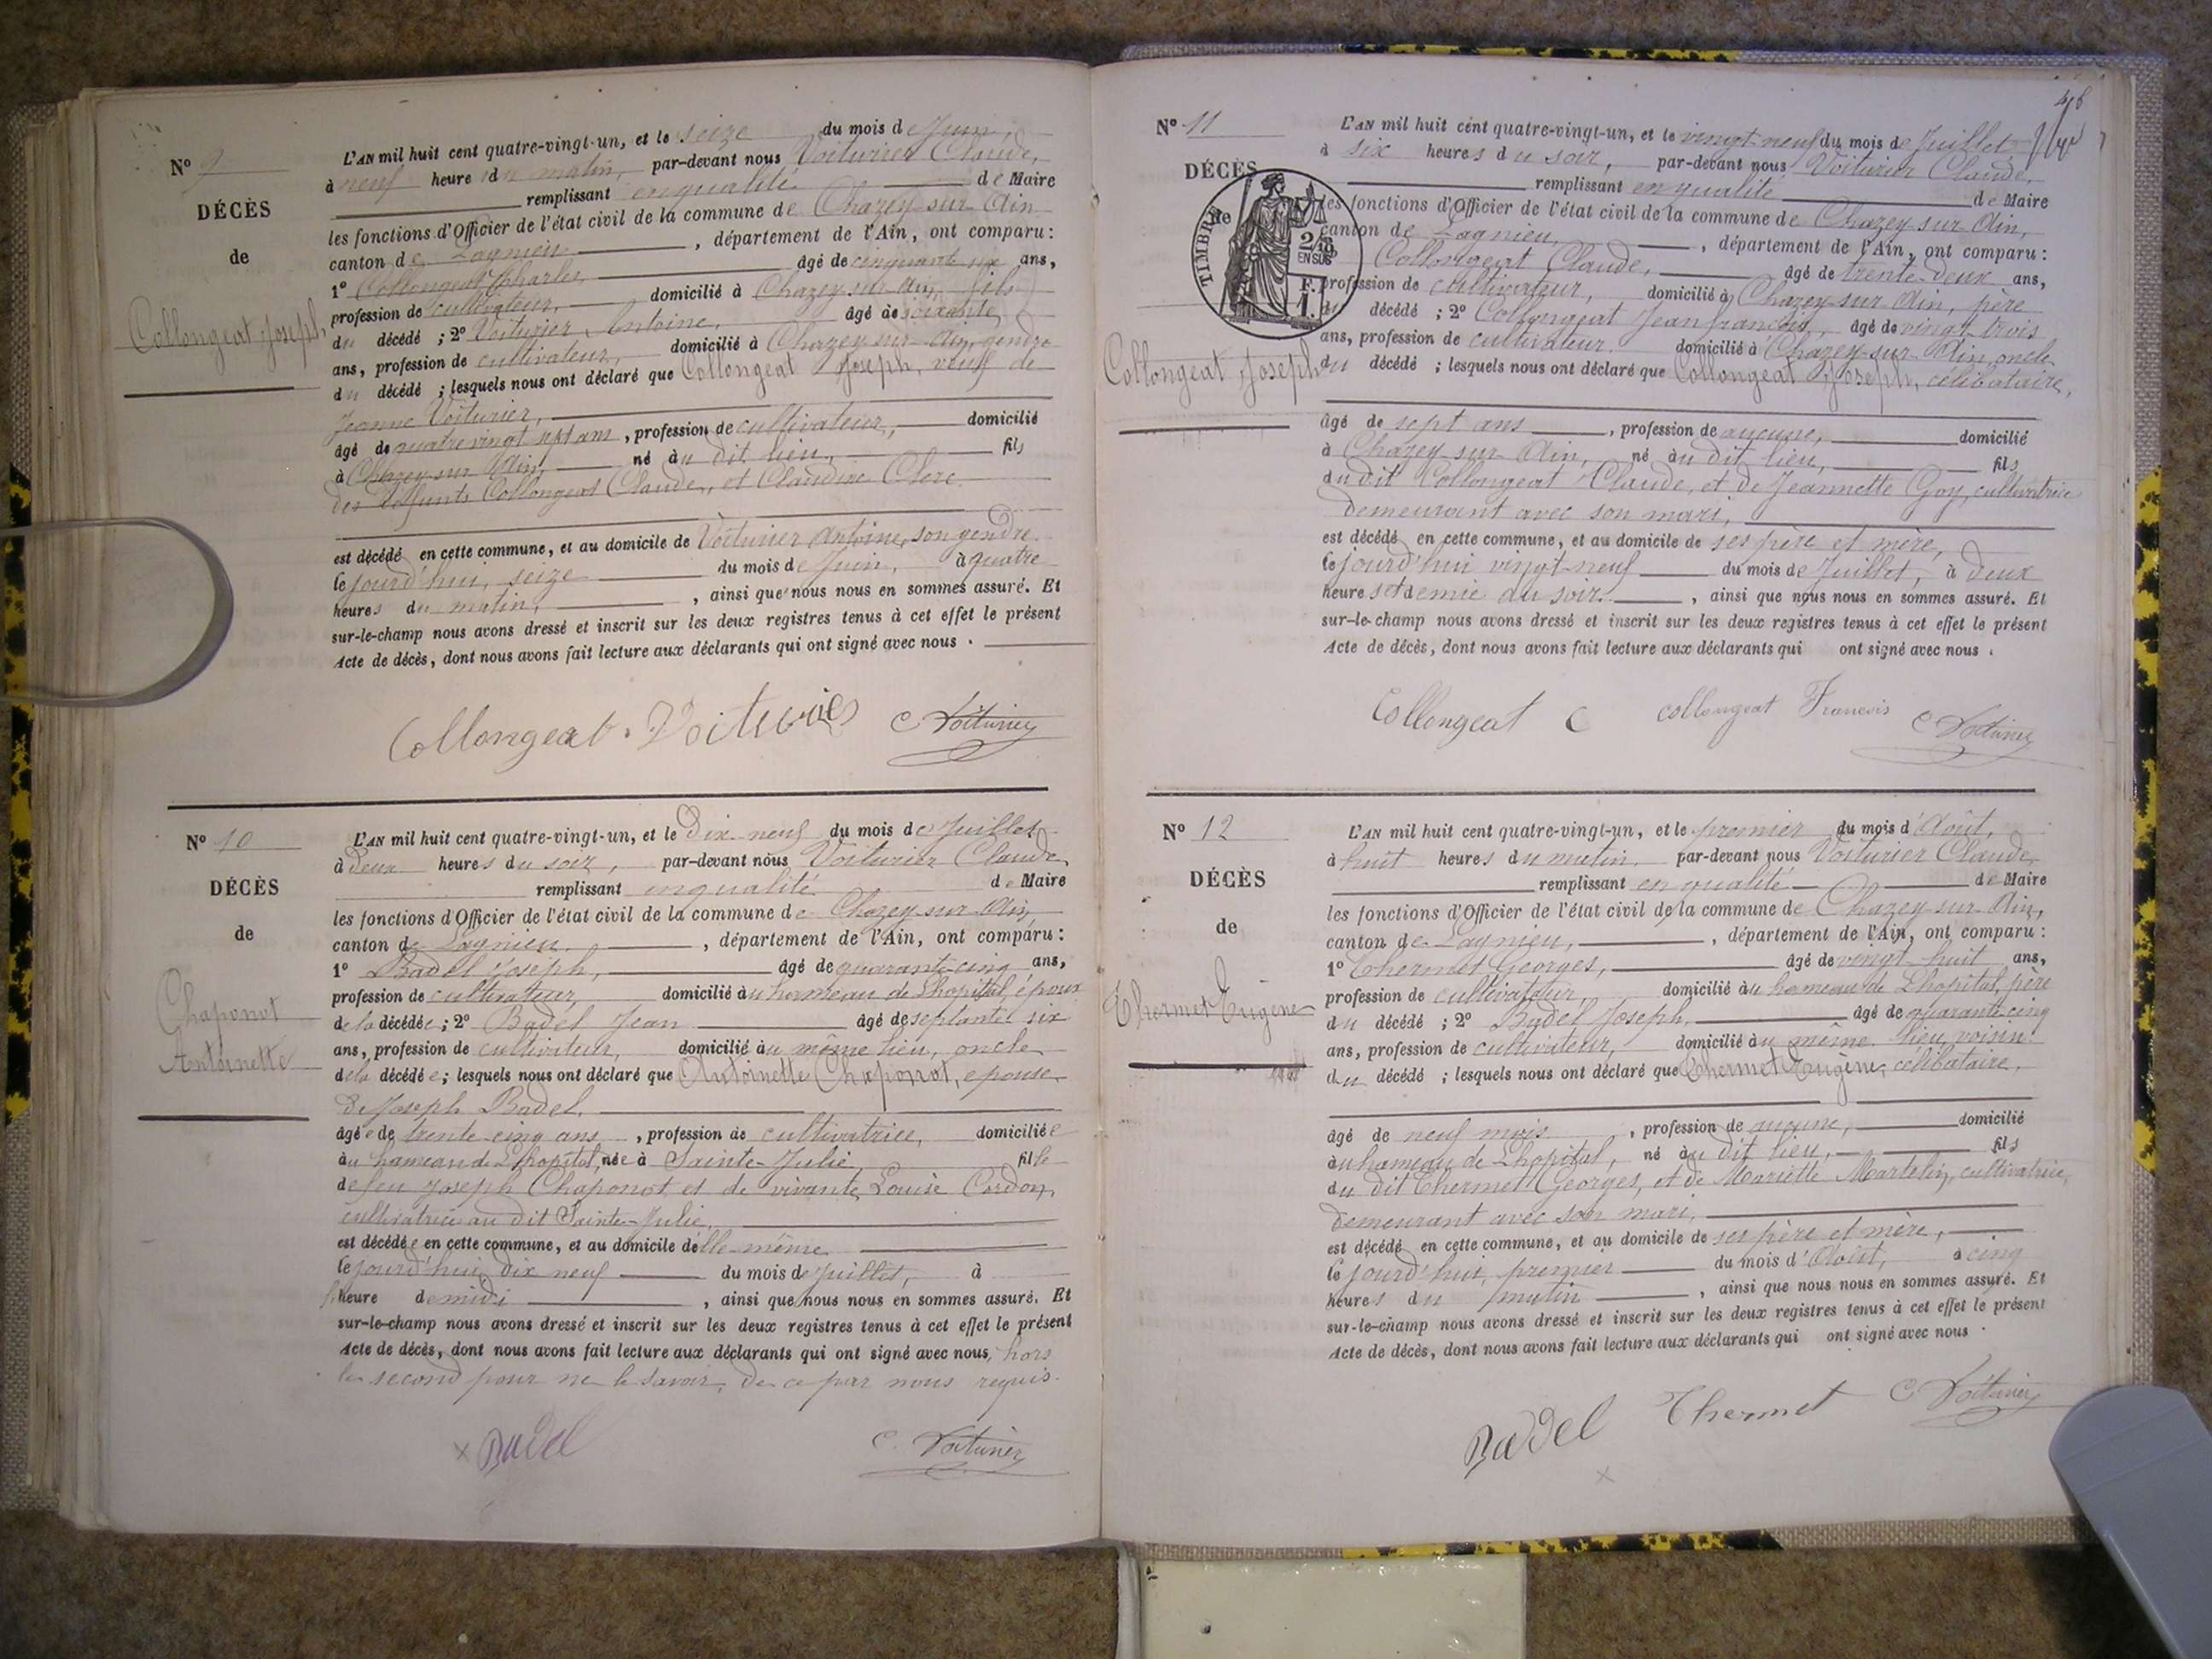 N° 9
DÉCÈS
de
Collongeat Joseph
L'AN mil huit cent quatre-vingt-un, et le seize du mois de Juin,
à neuf heures du matin, par-devant nous Voiturier Claude,
remplissant en qualité de Maire
les fonctions d'Officier de l'état civil de la commune de Chazey sur Ain
canton de Lagnieu, département de l'Ain, ont comparu :
1° Collongeat Charles, âgé de cinquante six ans,
profession de cultivateur, domicilié à Chazey sur Ain, fils
du décédé ; 2° Voiturier Antoine, âgé de soixante
ans, profession de cultivateur, domicilié à Chazey sur Ain, gendre
du décédé ; lesquels nous ont déclaré que Collongeat Joseph, veuf de
Jeanne Voiturier,
âgé de quatre vingt sept ans, profession de cultivateur, domicilié
à Chazey sur Ain, né au dit lieu, fils
des défunts Collongeat Claude, et Claudine Clerc.
est décédé en cette commune, et au domicile de Voiturier Antoine, son gendre.
le jourd'hui, seize du mois de Juin, à quatre
heures du matin, ainsi que nous nous en sommes assuré. Et
sur-le-champ nous avons dressé et inscrit sur les deux registres tenus à cet effet le présent
Acte de décès, dont nous avons fait lecture aux déclarants qui ont signé avec nous .
Collongeat . Voiturier C Voiturier
N° 10
DÉCÈS
de
Chaponot
Antoinette
L'AN mil huit cent quatre-vingt-un, et le Dix neuf du mois de Juillet
à deux heures du soir, par-devant nous Voiturier Claude,
remplissant en qualité de Maire
les fonctions d'Officier de l'état civil de la commune de Chazey sur Ain,
canton de Lagnieu, département de l'Ain, ont comparu :
1° Badel Joseph, âgé de quarante-cinq ans,
profession de cultivateur, domicilié au hameau de Lhopital, époux
de la décédée ; 2° Badel Jean âgé de septante six
ans, profession de cultivateur, domicilié au même lieu, oncle
de la décédée ; lesquels nous ont déclaré que Antoinette Chaponot, épouse
de Joseph Badel.
âgée de trente cinq ans, profession de cultivatrice, domiciliée
au hameau de Lhopital, née à Sainte-Julie fille
de feu Joseph Chaponot et de vivante Louise Cordon,
cultivatrice au dit Sainte-Julie,
est décédée en cette commune, et au domicile d'elle-même
le jourd'hui, dix neuf du mois de Juillet, à
heure de midi, ainsi que nous nous en sommes assuré. Et
sur-le-champ nous avons dressé et inscrit sur les deux registres tenus à cet effet le présent
Acte de décès, dont nous avons fait lecture aux déclarants qui ont signé avec nous, hors
le second pour ne le savoir, de ce par nous requis.
x Badel C. Voiturier
48
N° 11
DÉCÈS
de
TIMBRE
2/10
EN SUS
F.
1.
Collongeat Joseph
L'AN mil huit cent quatre-vingt-un, et le vingt neuf du mois de Juillet
à six heures du soir, par-devant nous Voiturier Claude,
remplissant en qualité de Maire
les fonctions d'Officier de l'état civil de la commune de Chazey sur Ain,
canton de Lagnieu, département de l'Ain, ont comparu :
Collongeat Claude, âgé de trente-deux ans,
profession de cultivateur, domicilié à Chazey sur Ain, père
du décédé ; 2° Collongeat Jean francois, âgé de vingt trois
ans, profession de cultivateur. domicilié à Chazey-sur-Ain, oncle
du décédé ; lesquels nous ont déclaré que Collongeat Joseph, célibataire,
âgé de sept ans, profession de aucune, domicilié
à Chazey sur Ain, né au dit lieu, fils
du dit Collongeat Claude, et de Jeannette Goy, cultivatrice
demeurant avec son mari,
est décédé en cette commune, et au domicile de ses père et mère,
le jourd'hui vingt-neuf du mois de Juillet, à deux
heures et demie du soir, ainsi que nous nous en sommes assuré. Et
sur-le-champ nous avons dressé et inscrit sur les deux registres tenus à cet effet le présent
Acte de décès, dont nous avons fait lecture aux déclarants qui ont signé avec nous .
Collongeat C collongeat Francois C Voiturier
N° 12
DÉCÈS
de
Thermet Eugène
L'AN mil huit cent quatre-vingt-un, et le premier du mois d'Août,
à huit heures du matin. par-devant nous Voiturier Claude,
remplissant en qualité de Maire
les fonctions d'Officier de l'état civil de la commune de Chazey-sur-Ain,
canton de Lagnieu, département de l'Ain, ont comparu :
1° Thermet Georges, âgé de vingt-huit ans,
profession de cultivateur, domicilié au hameau de Lhopital, père
du décédé ; 2° Badel Joseph, âgé de quarante-cinq
ans, profession de cultivateur, domicilié au même lieu, voisin
du décédé ; lesquels nous ont déclaré que Thermet Eugène, célibataire,
âgé de neuf mois, profession de aucune, domicilié
au hameau de Lhopital, né au dit lieu, fils
du dit Thermet Georges, et de Mariette Martelin, cultivatrice,
demeurant avec son mari,
est décédé en cette commune, et au domicile de ses père et mère,
le jourd'hui, premier du mois d'Août, à cinq
heures du matin, ainsi que nous nous en sommes assuré. Et
sur-le-champ nous avons dressé et inscrit sur les deux registres tenus à cet effet le présent
Acte de décès, dont nous avons fait lecture aux déclarants qui ont signé avec nous .
Badel Thermet C Voiturier
x